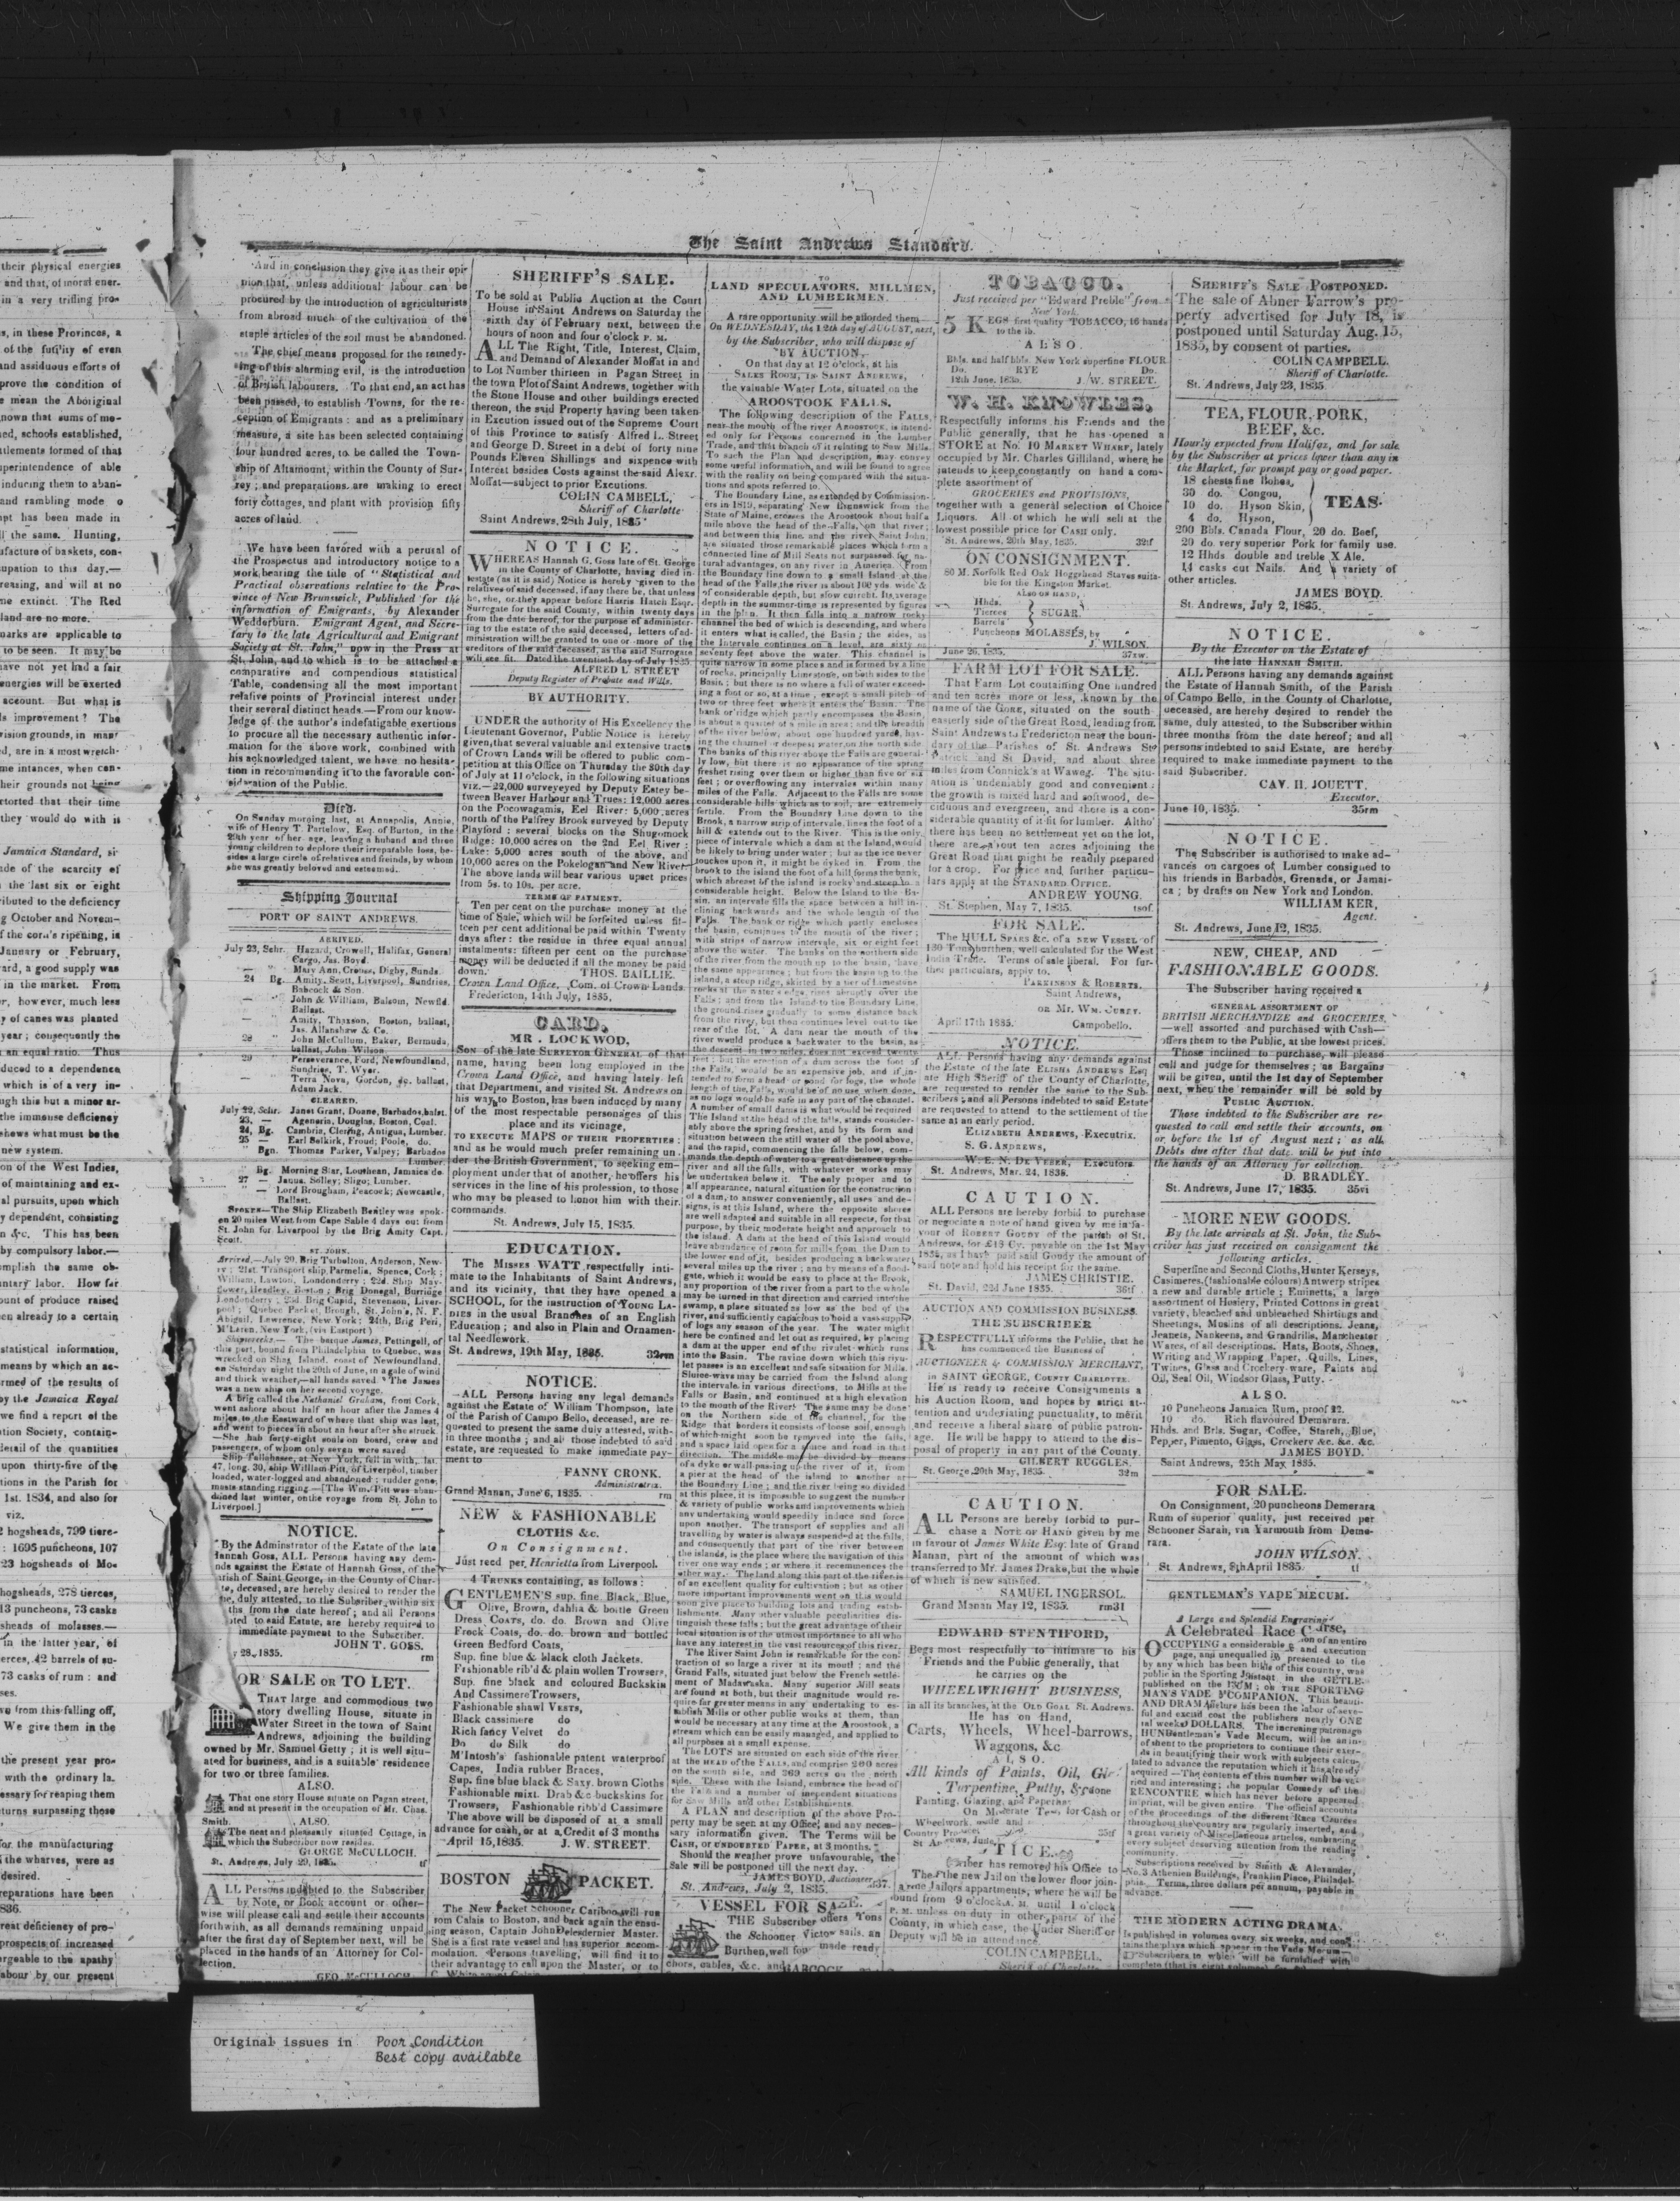 their physical energies
and that, of moral ener-
in a very trifling pro-
in these Provinces, a
of the futility of even
and assiduous efforts of
prove the condition of
mean the Aboriginal
nown that sums of mo-
ed, schools established,
tlements formed of that
perintendence of able
inducing them to aban-
and rambling mode o
pt has been made in
the same. Hunting,
ufacture of baskets, con-
upation to this day.—
reasing, and will at no
me extinct. The Red
land are no more.
marks are applicable to
to be seen. It may be
have not yet had a fair
energies will be exerted
account. But what is
improvement? The
ision grounds, in man
ed, are in a most wretch-
me intances, when con-
heir grounds not being
rtorted that their time
they would do with is
Jamaica Standard, si-
ade of the scarcity of
the last six or eight
ributed to the deficiency
g October and Novem-
f the corn's ripening, is
January or February,
ard, a good supply was
in the market. From
or, however, much less
y of canes was planted
year; consequently the
an equal ratio. Thus
duced to a dependence
which is of a very in-
ugh this but a minor ar-
the immense deficiency
shews what must be the
new system.
on of the West Indies,
of maintaining and ex-
al pursuits, upon which
y dependent, consisting
n &c. This has been
by compulsory labor.—
omplish the same ob-
untary labor. How far
ount of produce raised
en already to a certain
statistical information,
means by which an ac-
rmed of the results of
by the Jamaica Royal
we find a report of the
tion Society, contain-
detail of the quantities
upon thirty-five of the
tions in the Parish for
1st. 1834, and also for
viz.
hogsheads, 799 tierc-
: 1695 puncheons, 107
23 hogsheads of Mo-
hogsheads, 278 tierces,
13 puncheons, 73 casks
sheads of molasses.—
in the latter year, of
erces, 42 barrels of su-
73 casks of rum: and
ses.
ve from this falling off,
We give them in the
the present year pro-
with the ordinary la-
essary for reaping them
turns surpassing those
for the manufacturing
the wharves, were as
desired.
reparations have been
836.
reat deficiency of pro-
prospects of increased
rgeable to the apathy
labour by our present
The Saint Andrews Standard.
And in conclusion they give it as their opi-
nion that, unless additional labour can be
procured by the introduction of agriculturists
from abroad much of the cultivation of the
staple articles of the soil must be abandoned.
The chief means proposed for the remedy-
ing of this alarming evil, is the introduction
of British labourers. To that end, an act has
been passed, to establish Towns, for the re-
ception of Emigrants: and as a preliminary
measure, a site has been selected containing
four hundred acres, to be called the Town-
ship of Altamount, within the County of Sur-
rey; and preparations are making to erect
forty cottages, and plant with provision fifty
acres of land.
We have been favored with a perusal of
the Prospectus and introductory notice to a
work bearing the title of "Statistical and
Practical observations relative to the Pro-
vince of New Brunswick, Published for the
information of Emigrants, by Alexander
Wedderburn. Emigrant Agent, and Secre-
tary to the late Agricultural and Emigrant
Society at St. John," now in the Press at
St. John, and to which is to be attached a
comparative and compendious statistical
Table, condensing all the most important
relative points of Provincial interest under
their several distinct heads.—From our know-
ledge of the author's indefatigable exertions
to procure all the necessary authentic infor-
mation for the above work, combined with
his acknowledged talent, we have no hesita-
tion in recommending it to the favorable con-
sideration of the Public.
Died.
On Sunday morning last, at Annapolis, Annie,
wife of Henry T. Partelow, Esq. of Burton, in the
29th year of her age, leaving a huband and three
young children to deplore their irreparable loss, be-
sides a large circle of relatives and freinds, by whom
she was greatly beloved and esteemed.
Shipping Journal
PORT OF SAINT ANDREWS.
ARRIVED.
July 23, Schr. Hazard, Crowell, Halifax, General
Cargo, Jas. Boyd.
— " Mary Ann, Crouse, Digby, Sunds.
24 Bg. Amity, Scott, Liverpool, Sundries,
Babcock & Son.
— " John & William, Balsom, Newfld.
Ballast.
— " Amity, Thaxson, Boston, ballast,
Jas. Allanshaw & Co.
28 " John McCullum, Baker, Bermuda,
ballast, John Wilson.
29 " Perseverance, Ford, Newfoundland,
Sundries, T. Wyer.
— " Terra Nova, Gordon, do. ballast,
Adam Jack.
CLEARED.
July 22, Schr. Janet Grant, Doane, Barbados, balst.
23, — Agenoria, Douglas, Boston, Coal.
24, Bg. Cambria, Clering, Antigua, Lumber.
25. — Earl Selkirk, Froud; Poole, do.
" Bgn. Thomas Parker, Valpey; Barbados
Lumber.
" Bg. Morning Star, Louthean, Jamaica do.
27 — Janus, Solley; Sligo; Lumber.
" — Lord Brougham, Peacock; Newcastle,
Ballast.
SPOKEN—The Ship Elizabeth Bentley was spok-
en 20 miles West from Cape Sable 4 days out from
St. John for Liverpool by the Brig Amity Capt.
Scott.
ST. JOHN.
Arrived,—July 20, Brig Tarbolton, Anderson, New-
ry; 21st. Transport ship Parmelia, Spence, Cork;
William, Lawton, Londonderry; 22d. Ship May-
flower, Headley, Boston; Brig Donegal, Burridge
Londonderry; 23d. Brig Cupid, Stevenson, Liver-
pool; Quebec Packet, Brough, St. John's, N. F.
Abigail, Lawrence, New York; 24th, Brig Peri,
M'Laren, New York, (via Eastport)
Shipwrecks.—The barque James, Pettingell, of
this port, bound from Philadelphia to Quebec, was
wrecked on Shag Island, coast of Newfoundland,
on Saturday night the 20th of June, in a gale of wind
and thick weather,—all hands saved. The James
was a new ship on her second voyage.
A Brig called the Nathaniel Graham, from Cork,
went ashore about half an hour after the James 4
miles to the Eastward of where that ship was lost,
and went to pieces in about an hour after she struck.
—She hab forty-eight souls on board, crew and
passengers, of whom only seven were saved.
Ship Tallahasse, at New York, fell in with, lat.
47, long. 30, ship William Pitt, of Liverpool, timber
loaded, water-logged and abandoned: rudder gone,
masts standing rigging—[The Wm. Pitt was aban-
doned last winter, onthe voyage from St. John to
Liverpool.]
NOTICE.
By the Adminstrator of the Estate of the late
Hannah Goss, ALL Persons having any dem-
nds against the Estate of Hannah Goss, of the
arish of Saint George, in the County of Char-
te, deceased, are hereby desired to render the
ne, duly attested, to the Subcriber within six
ths from the date hereof; and all Persons
ted to said Estate, are hereby required to
immediate payment to the Subscriber.
JOHN T. GOSS.
y 28, 1835. rm
OR SALE OR TO LET.
THAT large and commodious two
story dwelling House, situate in
Water Street in the town of Saint
Andrews, adjoining the building
owned by Mr. Samuel Getty; it is well situ-
ated for business, and is a suitable residence
for two or three families.
ALSO.
That one story House situate on Pagan street,
and at present in the occupation of Mr. Chas.
Smith.
ALSO.
The neat and pleasantly situated Cottage, in
which the Subscriber now resides.
GEORGE McCULLOCH.
St. Andrews, July 29, 1835. tf
ALL Persons indebted to the Subscriber
by Note, or Book account or other-
wise will please call and settle their accounts
forthwith, as all demands remaining unpaid
after the first day of September next, will be
placed in the hands of an Attorney for Col-
lection.
GEO. McCULLOCH
SHERIFF'S SALE.
To be sold at Public Auction at the Court
House in Saint Andrews on Saturday the
sixth day of February next, between the
hours of noon and four o'clock P. M.
ALL The Right, Title, Interest, Claim,
and Demand of Alexander Moffat in and
to Lot Number thirteen in Pagan Street in
the town Plot of Saint Andrews, together with
the Stone House and other buildings erected
thereon, the said Property having been taken
in Excution issued out of the Supreme Court
of this Province to satisfy Alfred L. Street
and George D. Street in a debt of forty nine
Pounds Eleven Shillings and sixpence with
Interest besides Costs against the said Alexr.
Moffat—subject to prior Excutions.
COLIN CAMBELL,
Sheriff of Charlotte
Saint Andrews, 28th July, 1835
NOTICE.
WHEREAS Hannah G. Goss late of St. George
in the County of Charlotte, having died in-
testate (as it is said) Notice is hereby given to the
relatives of said deceased, if any there be, that unless
he, she, or they appear before Harris Hatch Esqr.
Surregate for the said County, within twenty days
from the date hereof, for the purpose of administer-
ing to the estate of the said deceased, letters of ad-
ministration will be granted to one or more of the
creditors of the said deceased, as the said Surrogate
will see fit. Dated the twentieth day of July 1835.
ALFRED L STREET
Deputy Register of Probate and Wills.
BY AUTHORITY.
UNDER the authority of His Excellency the
Lieutenant Governor, Public Notice is hereby
given, that several valuable and extensive tracts
of Crown Lands will be offered to public com-
petition at this Office on Thursday the 30th day
of July at 11 o'clock, in the following situations
VIZ.—22,000 surveyeyed by Deputy Estey be-
tween Beaver Harbour and Trues: 12,000 acres
on the Pocowagamis, Eel River: 5,000 acres
north of the Palfrey Brook surveyed by Deputy
Playford; several blocks on the Shugomock
Ridge: 10,000 acres on the 2nd Eel River;
Lake: 5,000 acres south of the above, and
10,000 acres on the Pokelogan and New River
The above lands will bear various upset prices
from 5s. to 10s. per acre.
TERMS OF PAYMENT.
Ten per cent on the purchase money at the
time of Sale, which will be forfeited unless fif-
teen per cent additional be paid within Twenty
days after: the residue in three equal annual
instalments: fifteen per cent on the purchase
money will be deducted if all the money be paid
down. THOS. BAILLIE.
Crown Land Office, Com. of Crown Lands
Fredericton, 14th July, 1835.
CARD.
MR. LOCKWOD.
SON of the late SURVEYOR GENERAL of that
name, having been long employed in the
Crown Land Office, and having lately left
that Department, and visited St. Andrews on
his way to Boston, has been induced by many
of the most respectable personages of this
place and its vicinage,
TO EXECUTE MAPS OF THEIR PROPERTIES:
and as he would much prefer remaining un-
der the British Government, to seeking em-
ployment under that of another, he offers his
services in the line of his profession, to those
who may be pleased to honor him with their
commands.
St. Andrews, July 15, 1835.
EDUCATION.
The MISSES WATT respectfully inti-
mate to the Inhabitants of Saint Andrews,
and its vicinity, that they have opened a
SCHOOL, for the instruction of YOUNG LA-
DIES in the usual Branches of an English
Education; and also in Plain and Ornamen-
tal Needlework.
St. Andrews, 19th May, 1835. 32rm
NOTICE.
ALL Persons having any legal demands
against the Estate of William Thompson, late
of the Parish of Campo Bello, deceased, are re-
quested to present the same duly attested, with-
in three months; and all those indebted to said
estate, are requested to make immediate pay-
ment to
FANNY CRONK.
Administratrix.
Grand Manan, June 6, 1835. rm
NEW & FASHIONABLE
CLOTHS &c.
On Consignment.
Just recd per Henrietta from Liverpool.
4 TRUNKS containing, as follows:
GENTLEMEN'S sup. fine Black, Blue,
Olive, Brown, dahlia & bottle Green
Dress COATS, do. do. Brown and Olive
Frock Coats, do. do. brown and bottled
Green Bedford Coats,
Sup. fine blue & black cloth Jackets.
Fashionable rib'd & plain wollen Trowsers,
Sup. fine black and coloured Buckskin
And Cassimere Trowsers,
Fashionable shawl VESTS,
Black cassimere do
Rich fancy Velvet do
Do do Silk do
M'Intosh's fashionable patent waterproof
Capes, India rubber Braces,
Sup. fine blue black & Saxy. brown Cloths
Fashionable mixt. Drab & c buckskins for
Trowsers, Fashionable ribb'd Cassimere
The above will be disposed of at a small
advance for cash, or at a Credit of 3 months
April 15, 1835. J. W. STREET.
BOSTON PACKET.
The New Packet Schooner Cariboo will run
rom Calais to Boston, and back again the ensu-
ing season, Captain John Delesdernier Master.
She is a first rate vessel and has superior accom-
modation. Persons travelling, will find it to
their advantage to call upon the Master, or to
TO
LAND SPECULATORS, MILLMEN,
AND LUMBERMEN.
A rare opportunity will be afforded them
On WEDNESDAY, the 12th day of AUGUST, next,
by the Subscriber, who will dispose of
BY AUCTION,
On that day at 12 o'clock, at his
SALES ROOM, IN SAINT ANDREWS,
the valuable Water Lots, situated on the
AROOSTOOK FALLS.
The following description of the FALLS,
near the mouth of the river AROOSTOCK, is intend-
ed only for Persons concerned in the Lumber
Trade, and that branch of it relating to Saw Mills.
To such the Plan and description, may convey
some useful information, and will be found to agree
with the reality on being compared with the situa-
tions and spots referred to.
The Boundary Line, as extended by Commission-
ers in 1819, separating New Brunswick from the
State of Maine, crosses the Aroostook about half a
mile above the head of the Falls, on that river;
and between this line, and the river Saint John,
are situated those remarkable places which form a
connected line of Mill Seats not surpassed for na-
tural advantages, on any river in America. From
the Boundary line down to a small Island at the
head of the Falls, the river is about 100 yds. wide &
of considerable depth, but slow current. Its average
depth in the summer-time is represented by figures
in the plan. It then falls into a narrow rocky
channel the bed of which is descending, and where
it enters what is called, the Basin; the sides, as
the Intervale continues on a level, are sixty or
seventy feet above the water. This channel is
quite narrow in some places and is formed by a line
of rocks, principally Limestone, on both sides to the
Basin; but there is no where a fall of water exceed-
ing a foot or so, at a time, except a small pitch of
two or three feet where it enters the Basin. The
bank or ridge which partly encompases the Basin,
is about a quarter of a mile in area; and the breadth
of the river below, about one hundred yards, hav-
ing the channel or deepest water, on the north side.
The banks of this river above the Falls are general-
ly low, but there is no appearance of the spring
freshet rising over them or higher than five or six
feet; or overflowing any intervales within many
miles of the Falls. Adjacent to the Falls are some
considerable hills which as to soil, are extremely
fertile. From the Boundary Line down to the
Brook, a narrow strip of intervale, lines the foot of a
hill & extends out to the River. This is the only
piece of intervale which a dam at the Island, would
be likely to bring under water; but as the ice never
touches upon it, it might be dyked in. From the
brook to the island the foot of a hill forms the bank,
which abreast of the island is rocky and steep to a
considerable height. Below the Island to the Ba-
sin, an intervale fills the space between a hill in-
clining backwards and the whole length of the
Falls. The bank or ridge which partly encloses
the basin, continues to the mouth of the river;
with strips of narrow intervale, six or eight feet
above the water. The banks on the northern side
of the river from the mouth up to the basin, have
the same appearance; but from the basin up to the
island, a steep ridge, skirted by a tier of Limestone
rocks at the water's edge, rises abruptly over the
Falls; and from the Island to the Boundary Line,
the ground rises gradually to some distance back
from the river, but then continues level out to the
rear of the lot. A dam near the mouth of the
river would produce a backwater to the basin, as
the descent in two miles, does not exceed twenty
feet; but the erection of a dam across the foot of
the Falls, would be an expensive job, and if in-
tended to form a head or pond for logs, the whole
length of the Falls, would be of no use when done,
as no logs would be safe in any part of the channel.
A number of small dams is what would be required
The Island at the head of the falls, stands consider-
ably above the spring freshet, and by its form and
situation between the still water of the pool above,
and the rapid, commencing the falls below, com-
mands the depth of water to a great distance up the
river and all the falls, with whatever works may
be undertaken below it. The only proper and to
all appearance, natural situation for the construction
of a dam, to answer conveniently, all uses and de-
signs, is at this Island, where the opposite shores
are well adapted and suitable in all respects, for that
purpose, by their moderate height and approach to
the island. A dam at the head of this Island would
leave abundance of room for mills from the Dam to
the lower end of it, besides producing a backwater
several miles up the river; and by means of a flood-
gate, which it would be easy to place at the Brook,
any proportion of the river from a part to the whole
may be turned in that direction and carried into the
swamp, a place situated as low as the bed of the
river, and sufficiently capacious to hold a vast supply
of logs any season of the year. The water might
here be confined and let out as required, by placing
a dam at the upper end of the rivulet which runs
into the Basin. The ravine down which this rivu-
let passes is an excellent and safe situation for Mills.
Sluice-ways may be carried from the Island along
the intervale, in various directions, to Mills at the
Falls or Basin, and continued at a high elevation
to the mouth of the River! The same may be done
on the Northern side of the channel, for the
Ridge that borders it consists of loose soil, enough
of which might soon be removed into the falls,
and a space laid open for a sluice and road in that
direction. The middle may be divided by means
of a dyke or wall passing up the river of it, from
a pier at the head of the island to another at
the Boundary Line; and the river being so divided
at this place, it is impossible to suggest the number
& variety of public works and improvements which
any undertaking would speedily induce and force
upon another. The transport of supplies and all
travelling by water is always suspended at the falls,
and consequently that part of the river between
the islands, is the place where the navigation of this
river one way ends; or where it recommences the
other way. The land along this part of the river is
of an excellent quality for cultivation; but as other
more important improvements went on this would
soon give place to building lots and trading estab-
lishments. Many other valuable peculiarities dis-
tinguish these falls; but the great advantage of their
local situation is of the utmost importance to all who
have any interest in the vast resources of this river.
The River Saint John is remarkable for the con-
traction of so large a river at its mouth; and the
Grand Falls, situated just below the French settle-
ment of Madawaska. Many superior Mill seats
are found at both, but their magnitude would re-
quire far greater means in any undertaking to es-
tablish Mills or other public works at them, than
would be necessary at any time at the Aroostook, a
stream which can be easily managed, and applied to
all purposes at a small expense.
The LOTS are situated on each side of the river
at the HEAD of the FALLS, and comprise 200 acres
on the south side, and 369 acres on the north
side. These with the Island, embrace the head of
the Falls and a number of inependent situations
for Saw Mills and other Establishments.
A PLAN and description of the above Pro-
perty may be seen at my Office, and any neces-
sary information given. The Terms will be
CASH, or UNDOUBTED PAPER, at 3 months.
Should the weather prove unfavourable, the
Sale will be postponed till the next day.
JAMES BOYD, Auctioneer
St. Andrews, July 2, 1835.
VESSEL FOR SALE.
THE Subscriber offers
the Schooner Victo sails, an
Burthen, well fou made ready
chors, cables, &c. and
BABCOCK
TOBACCO.
Just received per "Edward Preble" from
New York.
5 KEGS first quality TOBACCO, 16 hands
to the lb.
ALSO.
Bbls. and half bbls. New York superfine FLOUR
Do. RYE Do.
12th June, 1835. J. W. STREET.
W. H. KNOWLES,
Respectfully informs his Friends and the
Public generally, that he has opened a
STORE at No. 10 MARKET WHARF, lately
occupied by Mr. Charles Gilliland, where he
intends to keep constantly on hand a com-
plete assortment of
GROCERIES and PROVISIONS,
together with a general selection of Choice
Liquors. All of which he will sell at the
lowest possible price for CASH only.
St. Andrews, 20th May, 1835. 32tf
ON CONSIGNMENT.
80 M. Norfolk Red Oak Hoggshead Staves suita-
ble for the Kingston Market.
ALSO ON HAND,
Hhds.
Tierces SUGAR
Barrels
Puncheons MOLASSES, by
J. WILSON.
June 26, 1835. 37zw.
FARM LOT FOR SALE.
That Farm Lot containing One hundred
and ten acres more or less, known by the
name of the GORE, situated on the south
easterly side of the Great Road, leading from
Saint Andrews to Fredericton near the boun-
dary of the Parishes of St. Andrews St
Patrick and St David, and about three
miles from Connick's at Waweg. The situ-
ation is undeniably good and convenient:
the growth is mixed hard and softwood, de-
ciduous and evergreen, and there is a con-
siderable quantity of it fit for lumber. Altho'
there has been no settlement yet on the lot,
there are about ten acres adjoining the
Great Road that might be readily prepared
for a crop. For price and further particu-
lars apply at the STANDARD OFFICE.
ANDREW YOUNG.
St. Stephen, May 7, 1835. tsof.
FOR SALE.
The HULL SPARS &c. of a NEW VESSEL of
130 Tons burthen, well calculated for the West
India Trade. Terms of sale liberal. For fur-
ther particulars, apply to.
PARKINSON & ROBERTS.
Saint Andrews,
or MR. WM. CURRY.
April 17th 1835. Campobello.
NOTICE.
ALL Persons having any demands against
the Estate of the late ELISHA ANDREWS Esq
late High Sheriff of the County of Charlotte,
are requested to render the same to the Sub-
scribers; and all Persons indebted to said Estate
are requested to attend to the settlement of the
same at an early period.
ELIZABETH ANDREWS, Executrix.
S. G. ANDREWS,
W. E. N. DE VEBER, Executors.
St. Andrews, Mar. 24, 1835.
CAUTION.
ALL Persons are hereby forbid to purchase
or negociate a note of hand given by me in fa-
vour of ROBERT GOUDY of the parish of St.
Andrews, for £18 Cy. payable on the 1st May
1835, as I have paid said Goudy the amount of
said note and hold his receipt for the same.
JAMES CHRISTIE.
St. David, 22d June 1835. 36tf
AUCTION AND COMMISSION BUSINESS.
THE SUBSCRIBER
RESPECTFULLY informs the Public, that he
has commenced the Business of
AUCTIONEER & COMMISSION MERCHANT,
in SAINT GEORGE, COUNTY CHARLOTTE.
He is ready to receive Consignments a
his Auction Room, and hopes by strict at-
tention and undeviating punctuality, to merit
and receive a liberal share of public patron-
age. He will be happy to attend to the dis-
posal of property in any part of the County.
GILBERT RUGGLES.
St. George 20th May, 1835. 32m
CAUTION.
ALL Persons are hereby forbid to pur-
chase a NOTE OF HAND given by me
in favour of James White Esq: late of Grand
Manan, part of the amount of which was
transferred to Mr. James Drake, but the whole
of which is now satisfied.
SAMUEL INGERSOL.
Grand Manan May 12, 1835. rm31
EDWARD STENTIFORD,
Begs most respectfully to intimate to his
Friends and the Public generally, that
he carries on the
WHEELWRIGHT BUSINESS,
in all its branches, at the OLD GOAL St. Andrews.
He has on Hand,
Carts, Wheels, Wheel-barrows,
Waggons, &c
ALSO.
All kinds of Paints, Oil, Gl
Turpentine, Putty, &c done
Painting, Glazing, and Paperhan
On Moderate Te for Cash or
Wheelwork made and
Country Produce 35tf
St. Andrews, June
TICE.
riber has removed his Office to
The the new Jail on the lower floor join-
the Jailors appartments, where he will be
ound from 9 o'clock A. M. until 1 o'clock
P. M. unless on duty in other parts of the
County, in which case, the Under Sheriff or
Deputy will be in attendance.
COLIN CAMPBELL,
Sheriff of Charlotte
SHERIFF'S SALE POSTPONED.
The sale of Abner Farrow's pro-
perty advertised for July 18, is
postponed until Saturday Aug. 15,
1835, by consent of parties.
COLIN CAMPBELL.
Sheriff of Charlotte.
St. Andrews, July 23, 1835.
TEA, FLOUR, PORK,
BEEF, &c.
Hourly expected from Halifax, and for sale
by the Subscriber at prices lower than any in
the Market, for prompt pay or good paper.
18 chests fine Bohea,
30 do. Congou,
10 do. Hyson Skin, TEAS.
4 do. Hyson,
200 Bbls. Canada Flour, 20 do. Beef,
20 do. very superior Pork for family use.
12 Hhds. double and treble X Ale.
14 casks cut Nails. And a variety of
other articles.
JAMES BOYD.
St. Andrews, July 2, 1835.
NOTICE.
By the Executor on the Estate of
the late HANNAH SMITH.
ALL Persons having any demands against
the Estate of Hannah Smith, of the Parish
of Campo Bello, in the County of Charlotte,
deceased, are hereby desired to render the
same, duly attested, to the Subscriber within
three months from the date hereof; and all
persons indebted to said Estate, are hereby
required to make immediate payment to the
said Subscriber.
CAV. H. JOUETT,
Executor.
June 10, 1835. 35rm
NOTICE.
The Subscriber is authorised to make ad-
vances on cargoes of Lumber consigned to
his friends in Barbados, Grenada, or Jamai-
ca; by drafts on New York and London.
WILLIAM KER,
Agent.
St. Andrews, June 12, 1835.
NEW, CHEAP, AND
FASHIONABLE GOODS.
The Subscriber having received a
GENERAL ASSORTMENT OF
BRITISH MERCHANDIZE and GROCERIES,
—well assorted and purchased with Cash—
offers them to the Public, at the lowest prices.
Those inclined to purchase, will please
call and judge for themselves; as Bargains
will be given, until the 1st day of September
next, when the remainder will be sold by
PUBLIC AUCTION.
Those indebted to the Subscriber are re-
quested to call and settle their accounts, on
or before the 1st of August next; as all
Debts due after that date will be put into
the hands of an Attorney for collection.
D. BRADLEY.
St. Andrews, June 17, 1835. 35vi
MORE NEW GOODS.
By the late arrivals at St. John, the Sub-
criber has just received on consignment the
following articles.
Superfine and Second Cloths, Hunter Kerseys,
Casimeres, (fashionable colours) Antwerp stripes
a new and durable article; Eminetts, a large
assortment of Hosiery, Printed Cottons in great
variety, bleached and unbleached Shirtings and
Sheetings, Muslins of all descriptions. Jeans,
Jeanets, Nankeens, and Grandrills, Manchester
Wares, of all descriptions. Hats, Boots, Shoes,
Writing and Wrapping Paper, Quills, Lines,
Twines, Glass and Crockery ware, Paints and
Oil, Seal Oil, Windsor Glass, Putty.
ALSO.
10 Puncheons Jamaica Rum, proof 22.
10 do. Rich flavoured Demarara.
Hhds. and Brls. Sugar, Coffee, Starch, Blue,
Pepper, Pimento, Glass, Crockery &c. &c. &c.
JAMES BOYD.
Saint Andrews, 25th May 1835.
FOR SALE.
On Consignment, 20 puncheons Demerara
Rum of superior quality, just received per
Schooner Sarah, via Yarmouth from Deme-
rara.
JOHN WILSON.
St Andrews, 8th April 1835. tf
GENTLEMAN'S VADE MECUM.
A Large and Splendid Engraving
A Celebrated Race C urse,
OCCUPYING a considerable ion of an entire
page, and unequalled in and execution
by any which has been presented to the
public in the Sporting of this country, was
published on the in the GETLE-
MAN'S VADE M OR THE SPORTING
AND DRAMA COMPANION. This beauti-
ful and has been the labor of seve-
ral weeks and cost the publishers nearly ONE
HUN DOLLARS. The increasing patronage
of Gentleman's Vade Mecum, will be an in-
sent to the proprietors to continue their exer-
in beautifying their work with subjects calcu-
lated to advance the reputation which it has already
acquired—The contents of this number will be va-
ried and interesting; the popular Comedy of the
RENCONTRE which has never before appeared
in print, will be given entire. The official accounts
of the proceedings of the different Race Courses
throughout the country are regularly inserted, and
a great variety of Miscellaneous articles, embracing
every subject deserving attention from the reading
community.
Subscriptions received by Smith & Alexander,
No. 3 Athenian Buildings, Franklin Place, Philadel-
phia. Terms, three dollars per annum, payable in
advance.
THE MODERN ACTING DRAMA.
Is published in volumes every six weeks, and con-
tains the plays which appear in the Vade Mecum—
Subscribers to which will be furnished with
Original issues in Poor Condition
Best copy available